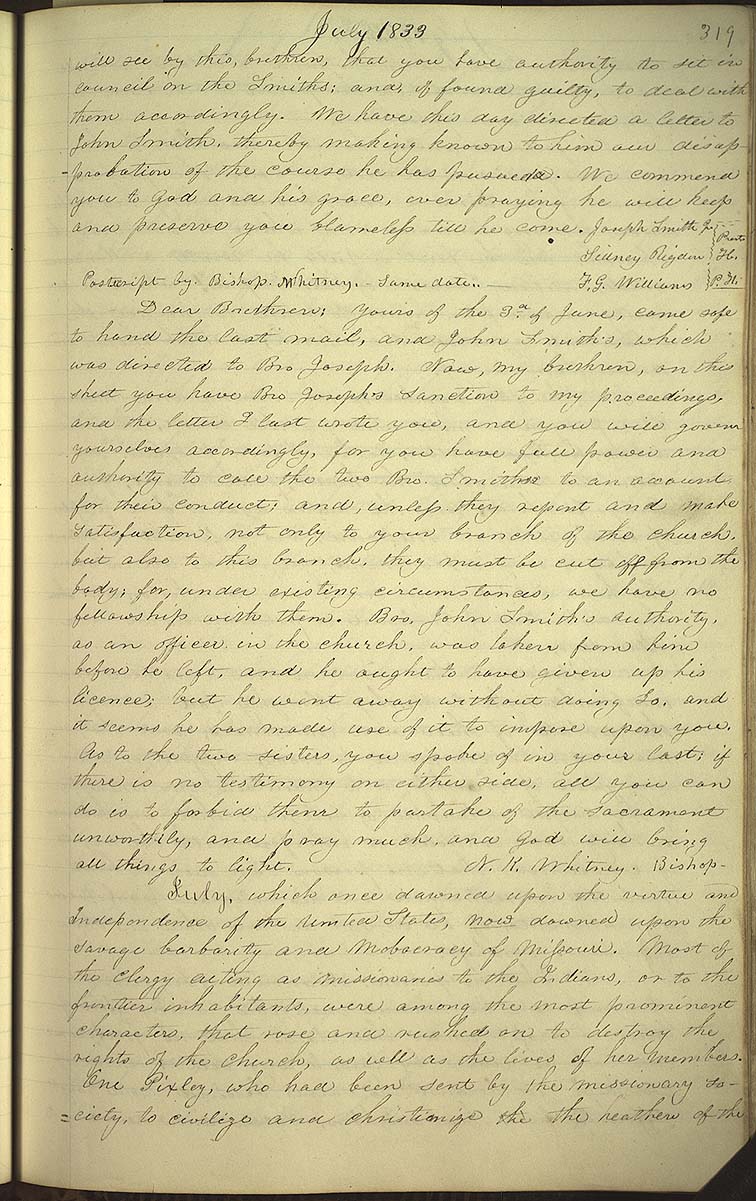 July 1833
319
will see by this, brethren, that you have authority to sit in
council on the Smiths; and, if found guilty, to deal with
them accordingly. We have this day directed a letter to
John Smith, thereby making known to him our disap-
-probation of the course he has pursued. We commend
you to God and his grace, ever praying he will keep
and preserve you blameless till he come. Joseph Smith Jr.
Sidney Rigdon
F. G. Williams
Prests
H.
P. H.
Postcript by Bishop Whitney. Same date..
Dear Brethren; Yours of the 3.d of June, came safe
to hand the last mail, and John Smith's, which
was directed to Bro Joseph. Now, my brethren, on this
sheet you have Bro Joseph's sanction to my proceedings,
and the letter I last wrote you, and you will govern
yourselves accordingly, for you have full power and
authority to call the two Bro. Smiths to an account
for their conduct; and, unless they repent and make
satisfaction, not only to your branch of the church,
but also to this branch, they must be cut off from the
body; for, under existing circumstances, we have no
fellowship with them. Bro. John Smith's authority,
as an officer in the church, was taken from him
before he left, and he ought to have given up his
licence; but he went away without doing so, and
it seems he has made use of it to impose upon you.
As to the two sisters, you spoke of in your last; if
there is no testimony on either side, all you can
do is to forbid them to partake of the sacrament
unworthily, and pray much, and God will bring
all things to light. N. K. Whitney. Bishop-
July, which once dawned upon the virtue and
Independence of the United States, now dawned upon the
savage barbarity and Mobocracy of Missouri. Most of
the Clergy acting as missionaries to the Indians, or to the
frontier inhabitants, were among the most prominent
characters, that rose and rushed on to destroy the
rights of the church, as well as the lives of her members.
One Pixley, who had been sent by the missionary so-
=ciety, to civilize and christianize the the heathen of the